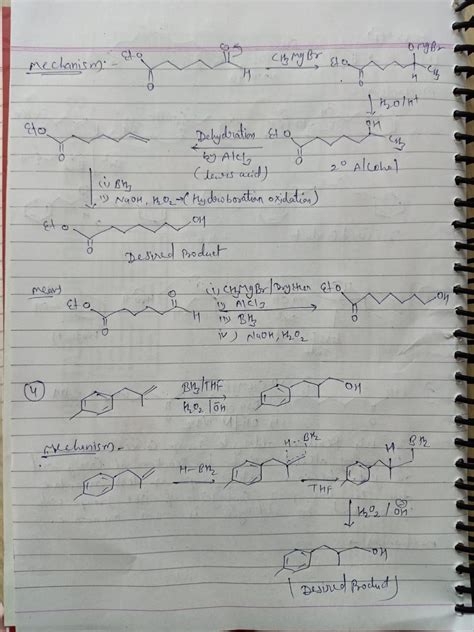 Mechanism:-
EtO
O
O
H
CH3MgBr
EtO
O
OMgBr
CH3
H
H2O/H+
EtO
O
Dehydration
by AlCl3
(lewis acid)
EtO
O
OH
CH3
2° Alcohol
(i) BH3
ii) NaOH, H2O2 → (Hydroboration oxidation)
EtO
O
OH
Desired Product
means
EtO
O
O
H
(i) CH3MgBr/Dryether
ii) AlCl3
iii) BH3
iv) NaOH, H2O2
EtO
O
OH
(4)
BH3/THF
H2O2/ŌH
OH
Mechanism-
H-BH2
H...BH2
THF
H
BH2
H2O2/ŌH
OH
(Desired Product)